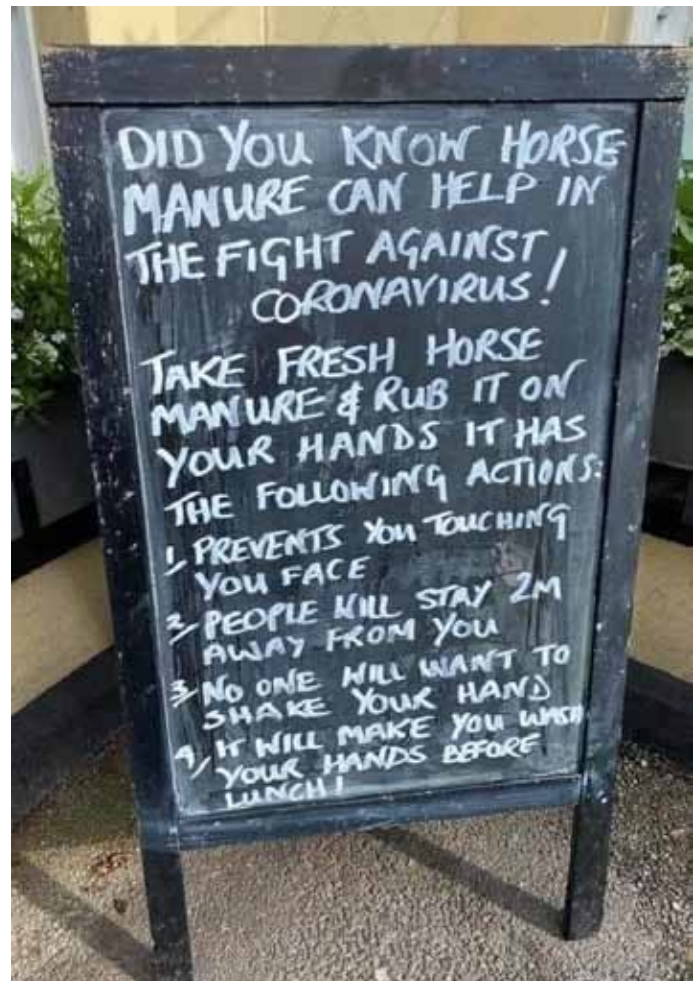 DID YOU KNOW HORSE
MANURE CAN HELP IN
THE FIGHT AGAINST
CORONAVIRUS!
TAKE FRESH HORSE
MANURE & RUB IT ON
YOUR HANDS IT HAS
THE FOLLOWING ACTIONS:
1/ PREVENTS YOU TOUCHING
YOU FACE
2/ PEOPLE WILL STAY 2M
AWAY FROM YOU
3/ NO ONE WILL WANT TO
SHAKE YOUR HAND
4/ IT WILL MAKE YOU WASH
YOUR HANDS BEFORE
LUNCH!